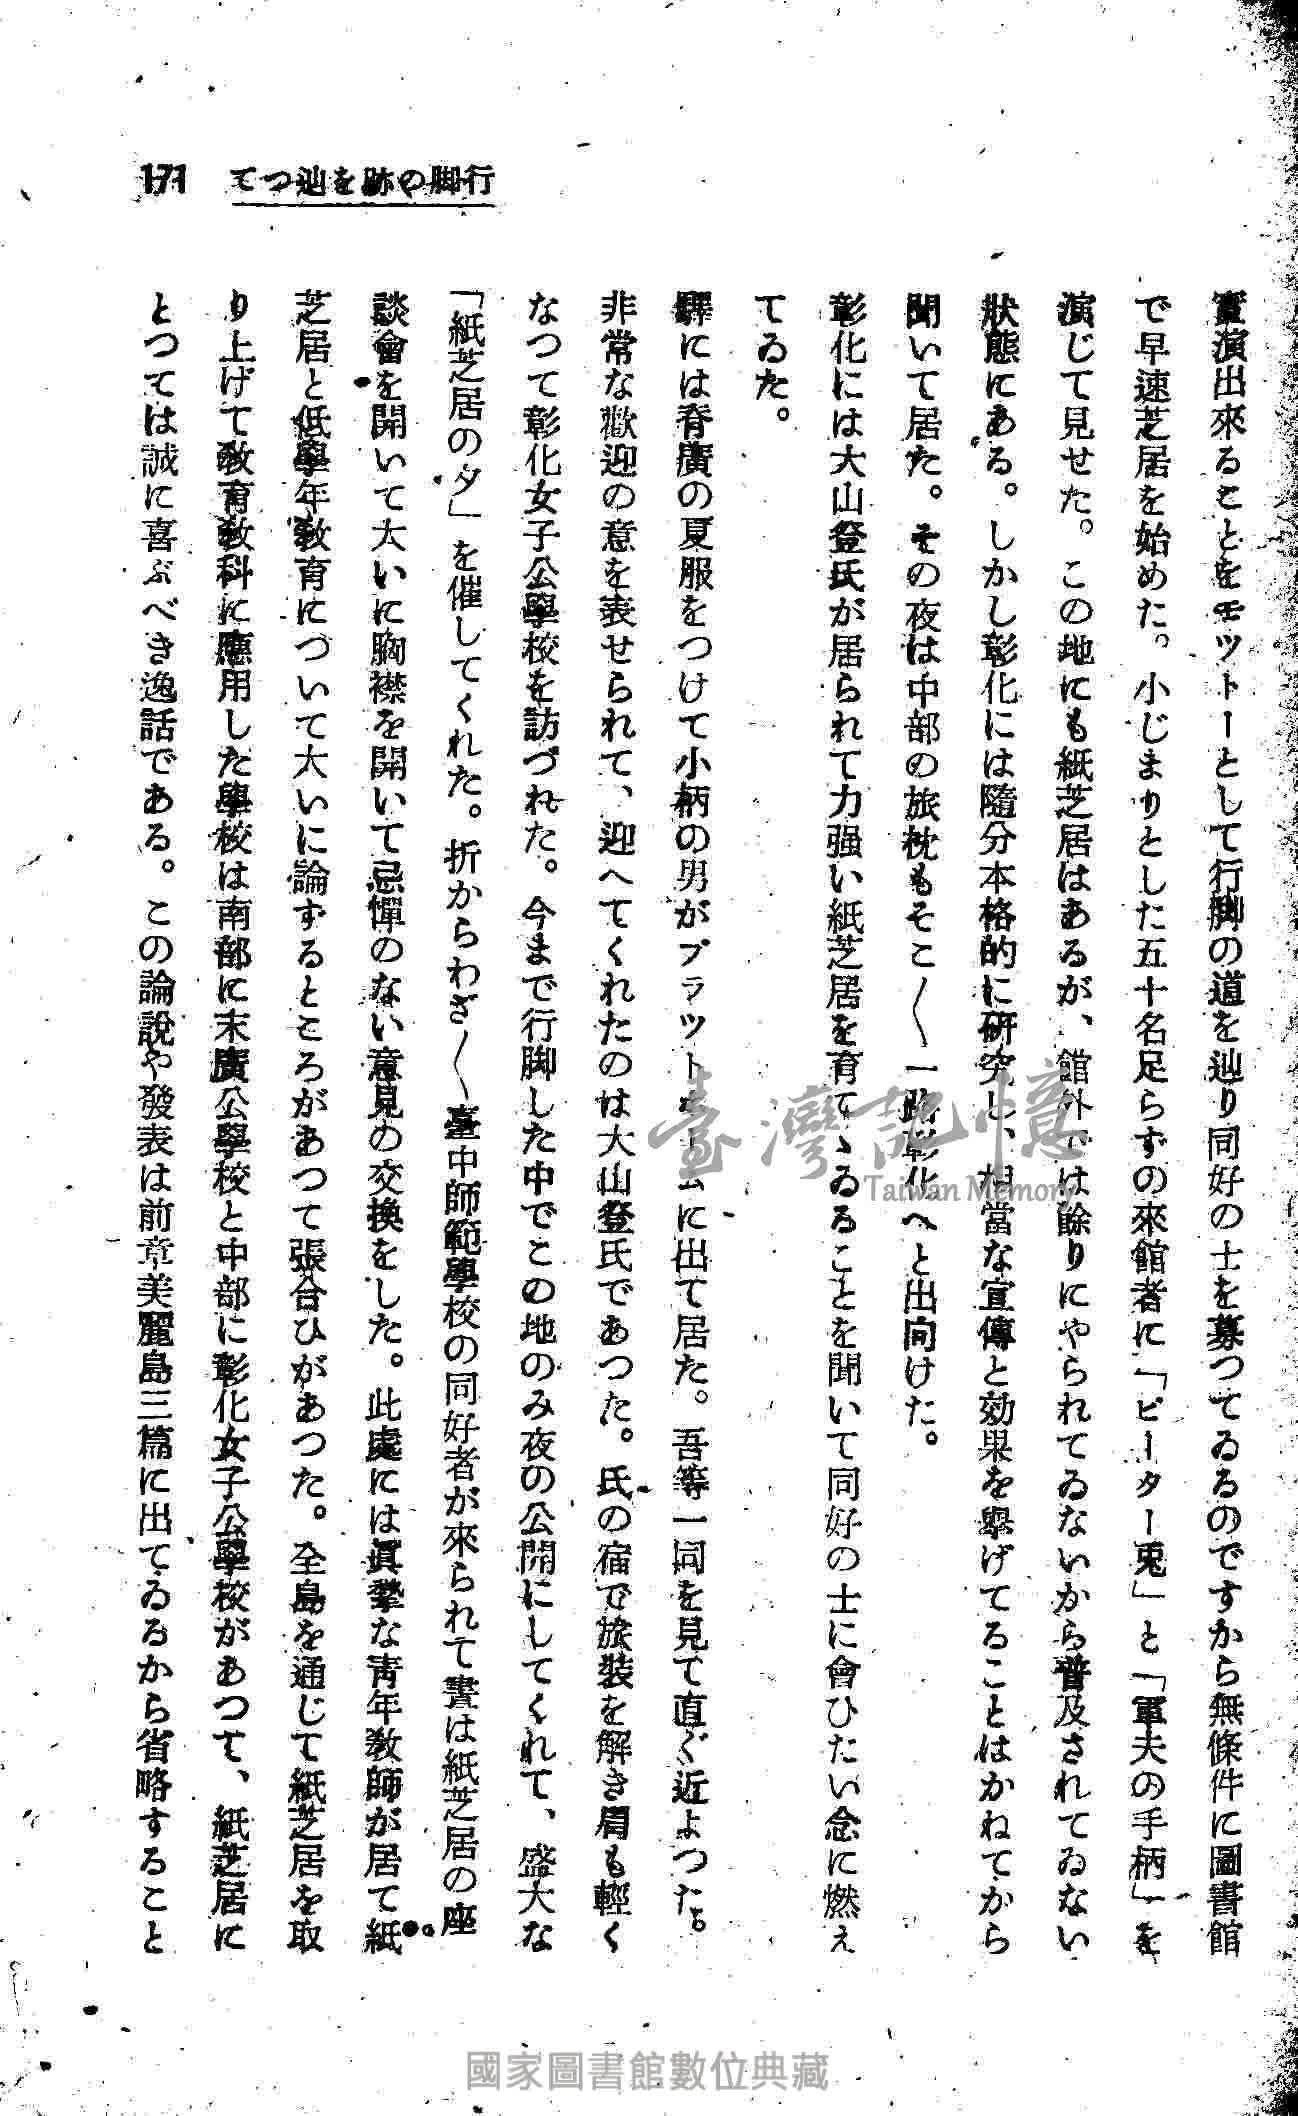 171 てつ辿を跡の脚行
實演出來ることをモツトーとして行脚の道を辿り同好の士を募つてゐるのですから無條件に圖書館
で早速芝居を始めた。小じまりとした五十名足らずの來館者に「ピーター兎」と「軍夫の手柄」を
演じて見せた。この地にも紙芝居はあるが、館外では餘りにやられてゐないから普及されてゐない
狀態にある。しかし彰化には隨分本格的に硏究し、相當な宣傳と効果を擧げてることはかねてから
聞いて居た。その夜は中部の旅枕もそこ〳〵一路彰化へと出向けた。
彰化には大山登氏が居られて力强い紙芝居を育てゝゐることを聞いて同好の士に會ひたい念に燃え
てゐた。
驛には脊廣の夏服をつけて小柄の男がプラツトホームに出て居た。吾等一同を見て直ぐ近よつた。
非常な歡迎の意を表せられて、迎へてくれたのは大山登氏であつた。氏の宿で旅裝を解き肩も輕く
なつて彰化女子公學校を訪づれた。今まで行脚した中でこの地のみ夜の公開にしてくれて、盛大な
「紙芝居の夕」を催してくれた。折からわざ〳〵臺中師範學校の同好者が來られて晝は紙芝居の座
談會を開いて大いに胸襟を開いて忌憚のない意見の交換をした。此處には眞摯な靑年敎師が居て紙
芝居と低學年敎育について大いに論ずるところがあつて張合ひがあつた。全島を通じて紙芝居を取
り上げて敎育敎科に應用した學校は南部に末廣公學校と中部に彰化女子公學校があつて、紙芝居に
とつては誠に喜ぶべき逸話である。この論說や發表は前章美麗島三篇に出てゐるから省略すること
臺灣記憶
Taiwan Memory
國家圖書館數位典藏